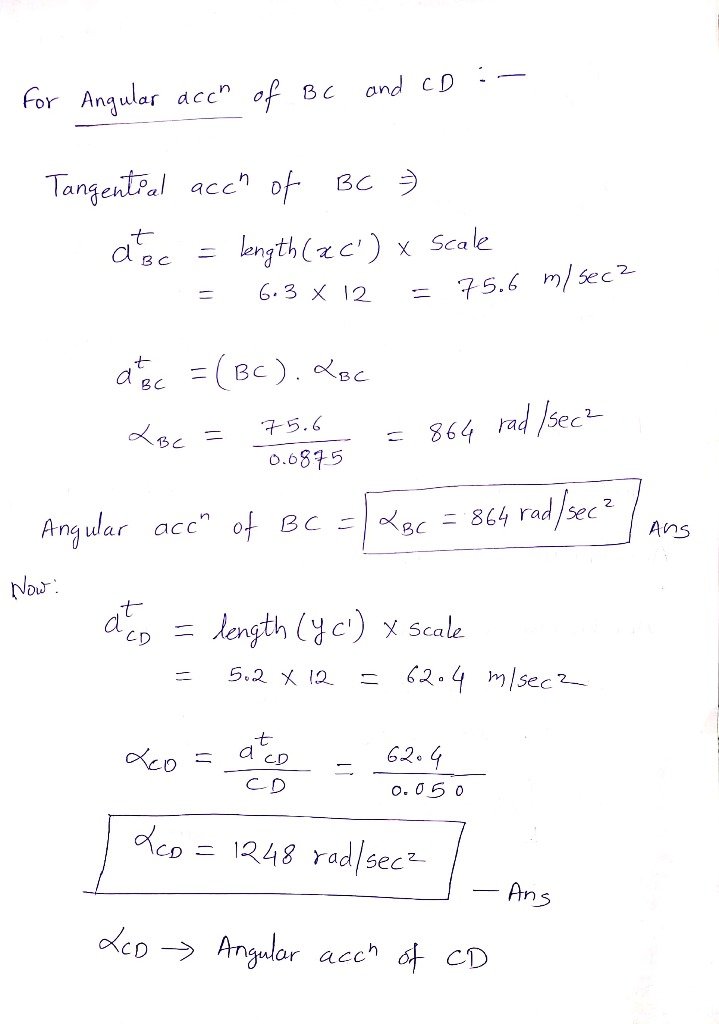 For Angular accⁿ of BC and CD :—
Tangential accⁿ of BC ⇒
aᵗ_BC = length(xc') × Scale
= 6.3 × 12 = 75.6 m/sec²
aᵗ_BC = (BC). α_BC
α_BC = 75.6 / 0.0875 = 864 rad/sec²
Angular accⁿ of BC = α_BC = 864 rad/sec² Ans
Now:
aᵗ_CD = length(yc') × scale
= 5.2 × 12 = 62.4 m/sec²
α_CD = aᵗ_CD / CD = 62.4 / 0.050
α_CD = 1248 rad/sec² — Ans
α_CD → Angular accⁿ of CD